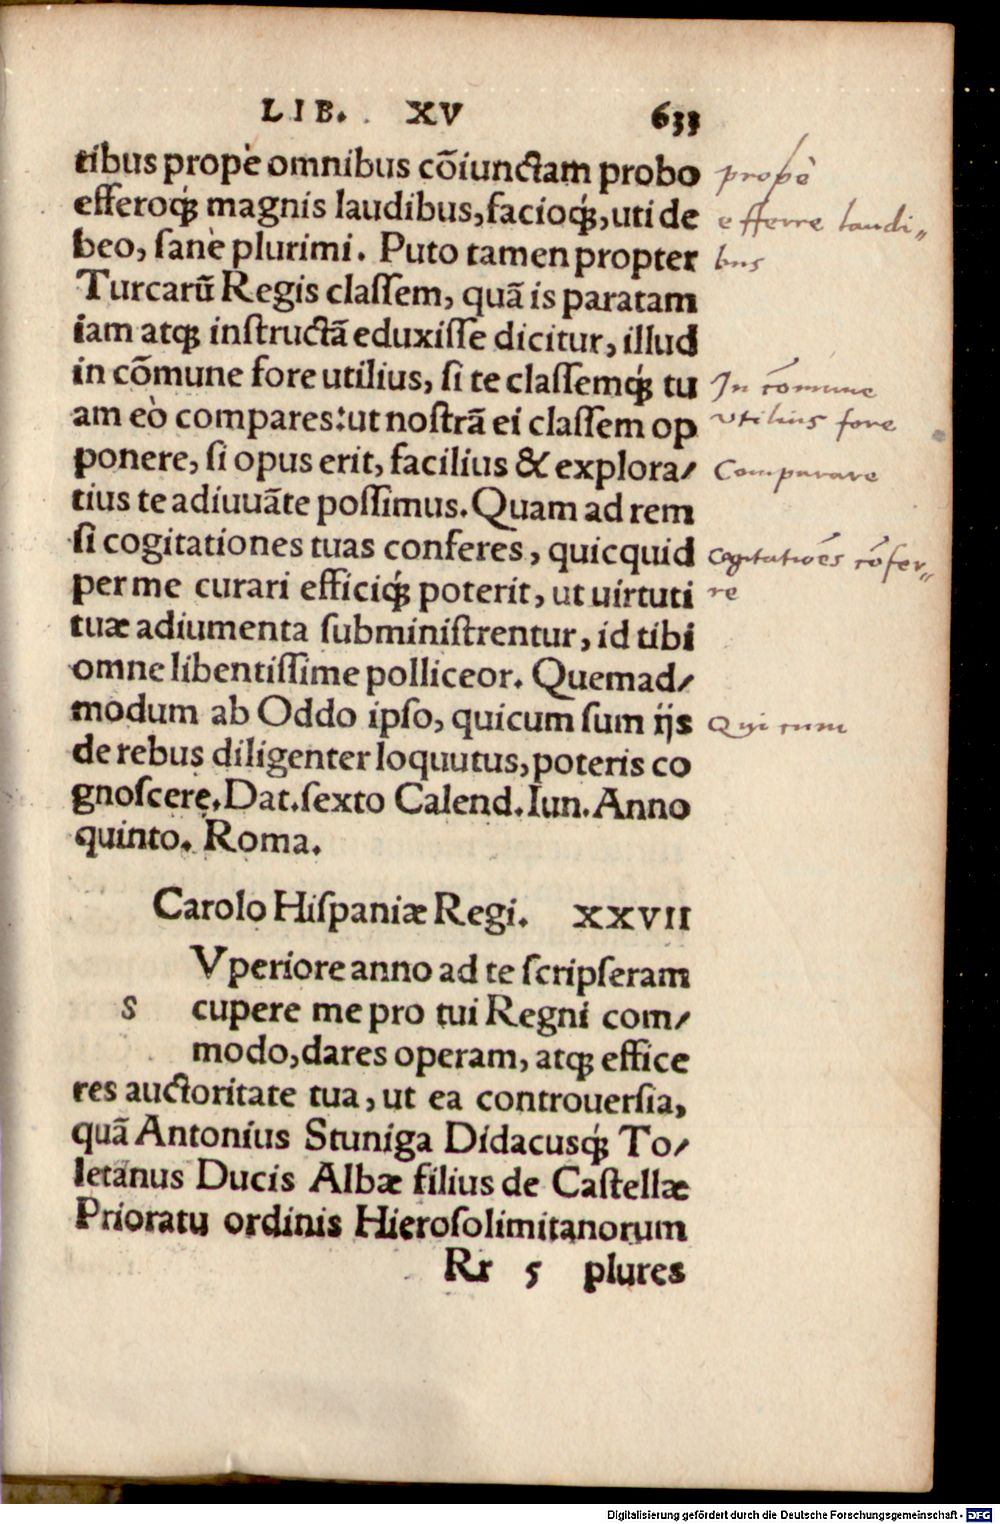 LIB. XV 633
tibus propè omnibus cõiunctam probo
efferoq́; magnis laudibus, facioq́;, uti de
beo, sanè plurimi. Puto tamen propter
Turcarũ Regis classem, quã is paratam
iam atq; instructã eduxisse dicitur, illud
in cõmune fore utilius, si te classemq́; tu
am eò compares: ut nostrã ei classem op
ponere, si opus erit, facilius & explora/
tius te adiuuãte possimus. Quam ad rem
si cogitationes tuas conferes, quicquid
per me curari efficiq́; poterit, ut uirtuti
tuæ adiumenta subministrentur, id tibi
omne libentissime polliceor. Quemad/
modum ab Oddo ipso, quicum sum ijs
de rebus diligenter loquutus, poteris co
gnoscere. Dat. sexto Calend. Iun. Anno
quinto. Roma.
propè
efferre laudi„
bus
In cõmune
utilius fore
Comparare
cogitatiões cõfer„
re
Qui cum
Carolo Hispaniæ Regi. XXVII
Vperiore anno ad te scripseram
s cupere me pro tui Regni com/
modo, dares operam, atq; effice
res auctoritate tua, ut ea controuersia,
quã Antonius Stuniga Didacusq́; To/
letanus Ducis Albæ filius de Castellæ
Prioratu ordinis Hierosolimitanorum
Rr 5 plures
Digitalisierung gefördert durch die Deutsche Forschungsgemeinschaft - DFG